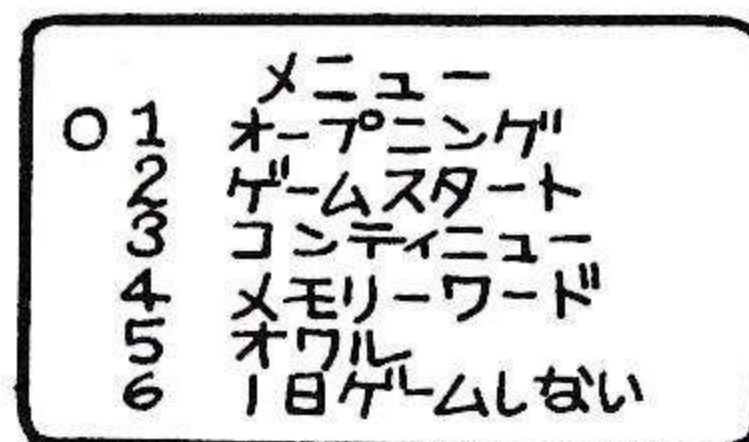 メニュー
○ 1 オープニング
2 ゲームスタート
3 コンティニュー
4 メモリーワード
5 オワル
6 1日ゲームしない